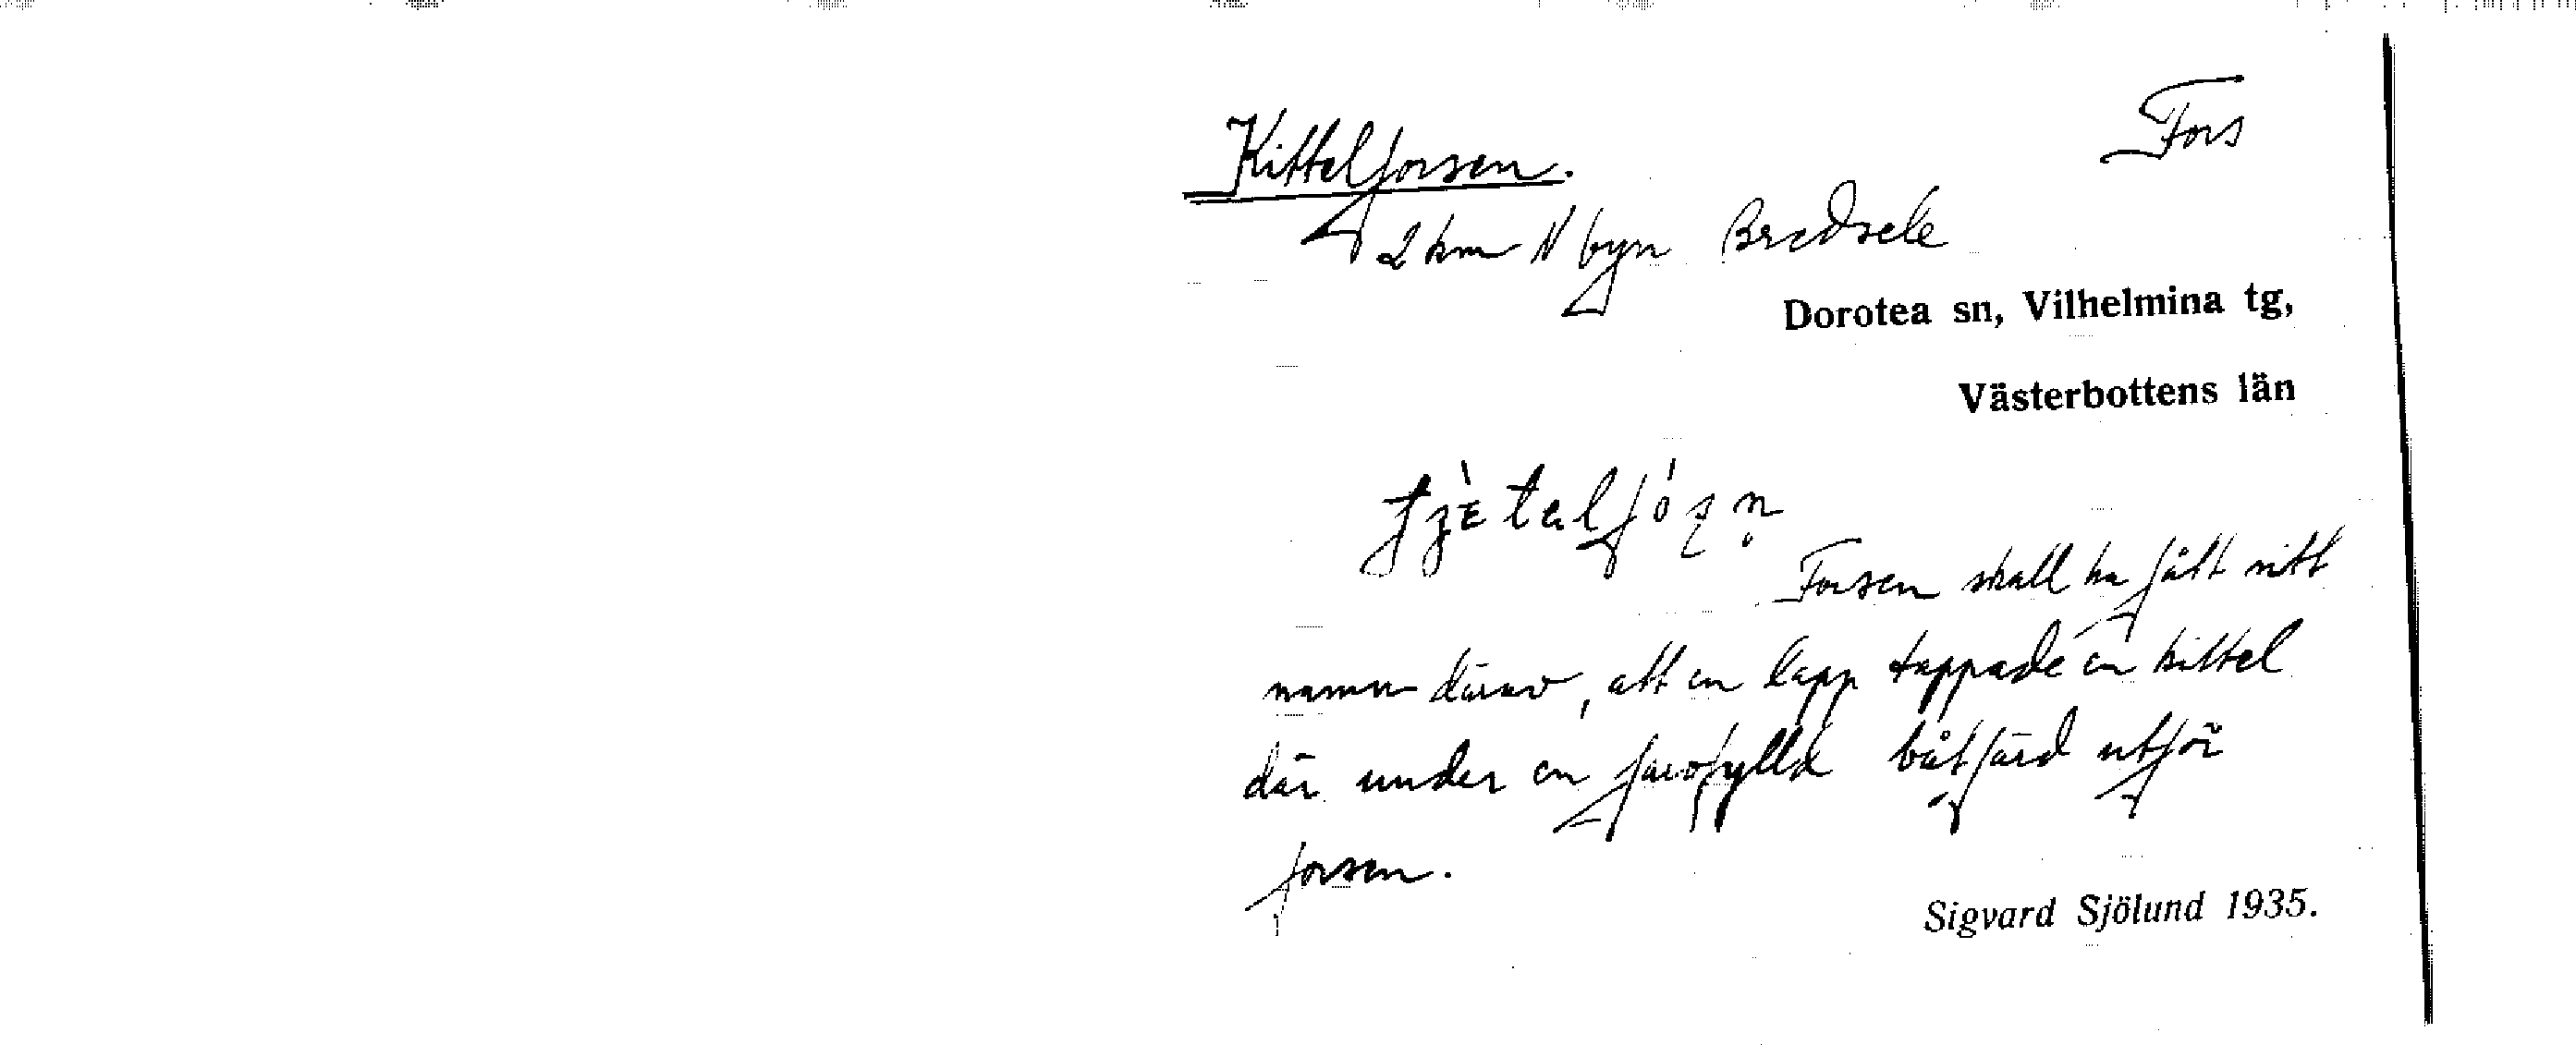 Kittelforsen.
Fors
2 km N byn Bredsele
Dorotea sn, Vilhelmina tg,
Västerbottens län
Forsen skall ha fått sitt
namn därav, att en lapp tappade en kittel
där under en farofylld båtfärd utför
forsen.
Sigvard Sjölund 1935.